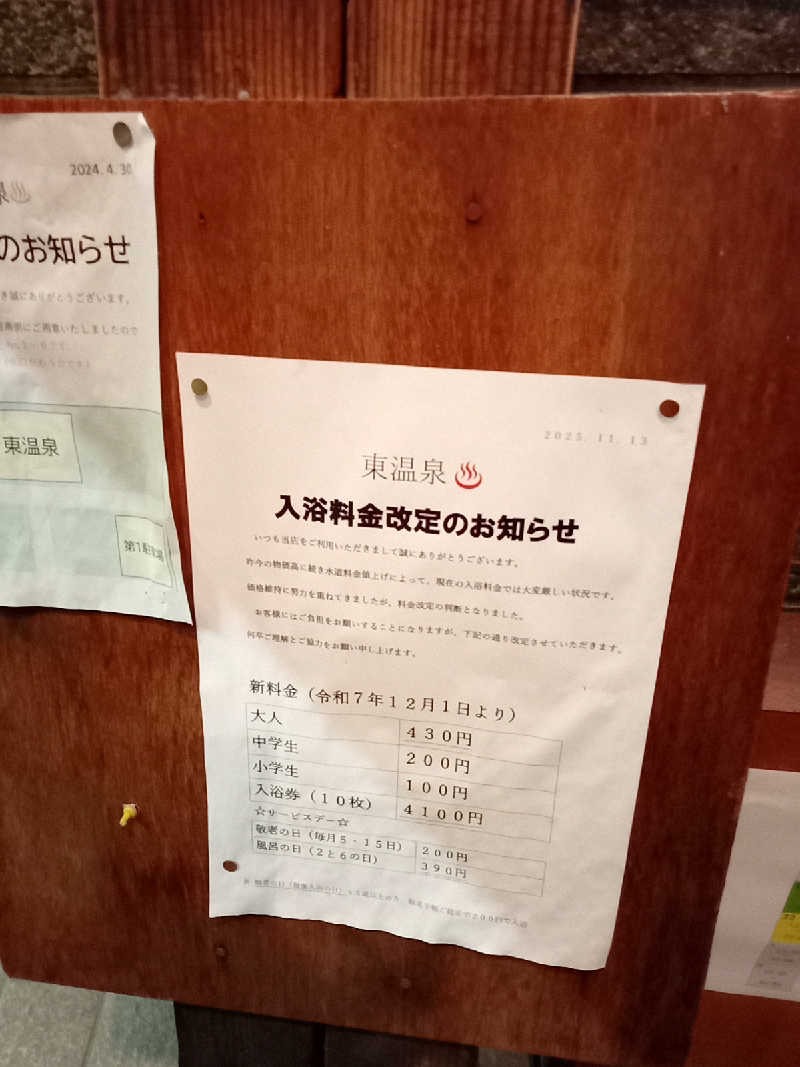 2024.4.30
泉
のお知らせ
き誠にありがとうございます。
にご用意いたしましたので
東温泉
第1駐車場
2025.11.13
東温泉
入浴料金改定のお知らせ
いつも当店をご利用いただきまして誠にありがとうございます。
昨今の物価高に続き水道料金値上げによって、現在の入浴料金では大変厳しい状況です。
価格維持に努力を重ねてきましたが、料金改定の判断となりました。
お客様にはご負担をお願いすることになりますが、下記の通り改定させていただきます。
何卒ご理解とご協力をお願い申し上げます。
新料金（令和7年12月1日より）
大人 430円
中学生 200円
小学生 100円
入浴券（10枚） 4100円
☆サービスデー☆
敬老の日（毎月5・15日） 200円
風呂の日（2と6の日） 390円